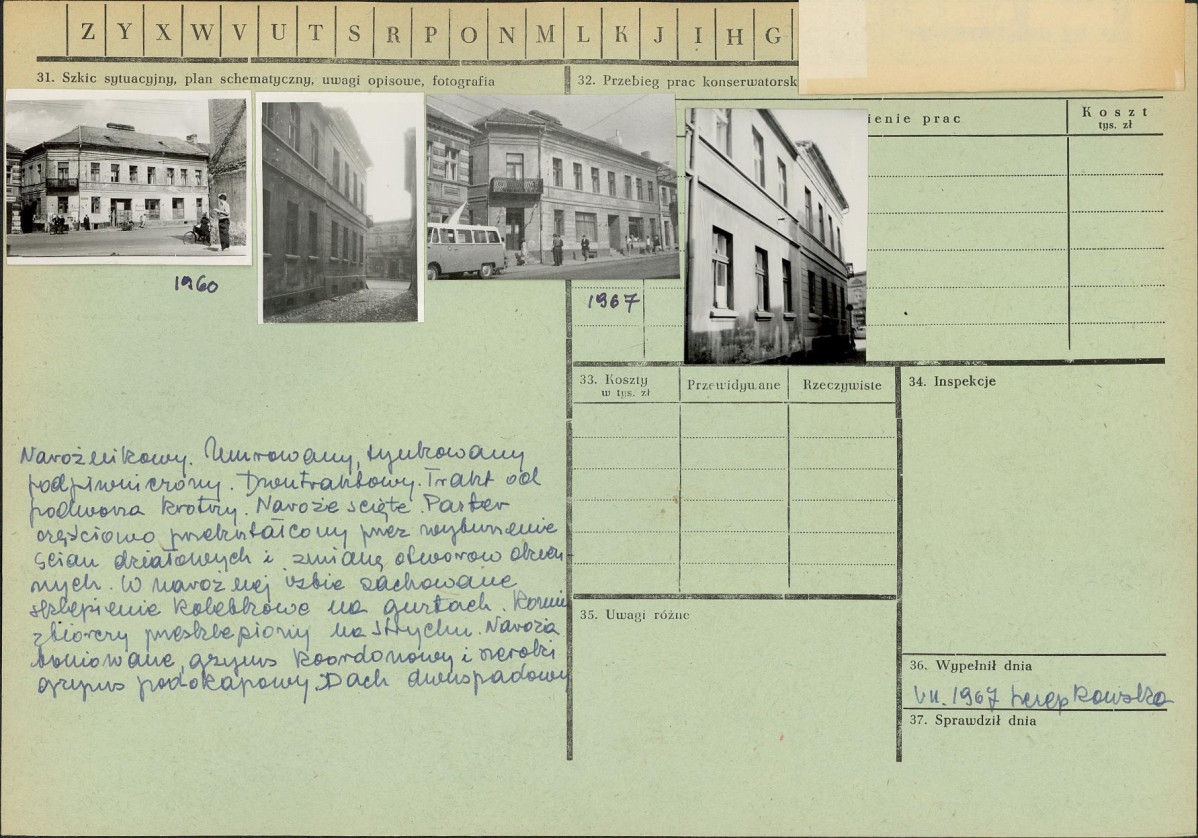 Z Y X W V U T S R P O N M L K J I H G
31. Szkic sytuacyjny, plan schematyczny, uwagi opisowe, fotografia
32. Przebieg prac konserwatorsk
ienie prac
Koszt
tys. zł
1960
1967
Narożnikowy. Murowany, tynkowany
podpiwniczony. Dwutraktowy. Trakt od
podwórza krótszy. Naroże ścięte. Parter
częściowo przekształcony przez wyburzenie
ścian działowych i zmianę otworów okien-
nych. W narożnej izbie zachowane
sklepienie kolebkowe na gurtach. Komin
zbiorczy przesklepiony na strychu. Naroża
boniowane, gzyms kordonowy i szeroki
gzyms podokapowy. Dach dwuspadowy
33. Koszty
w tys. zł
Przewidywane
Rzeczywiste
34. Inspekcje
35. Uwagi różne
36. Wypełnił dnia
VII. 1967
37. Sprawdził dnia